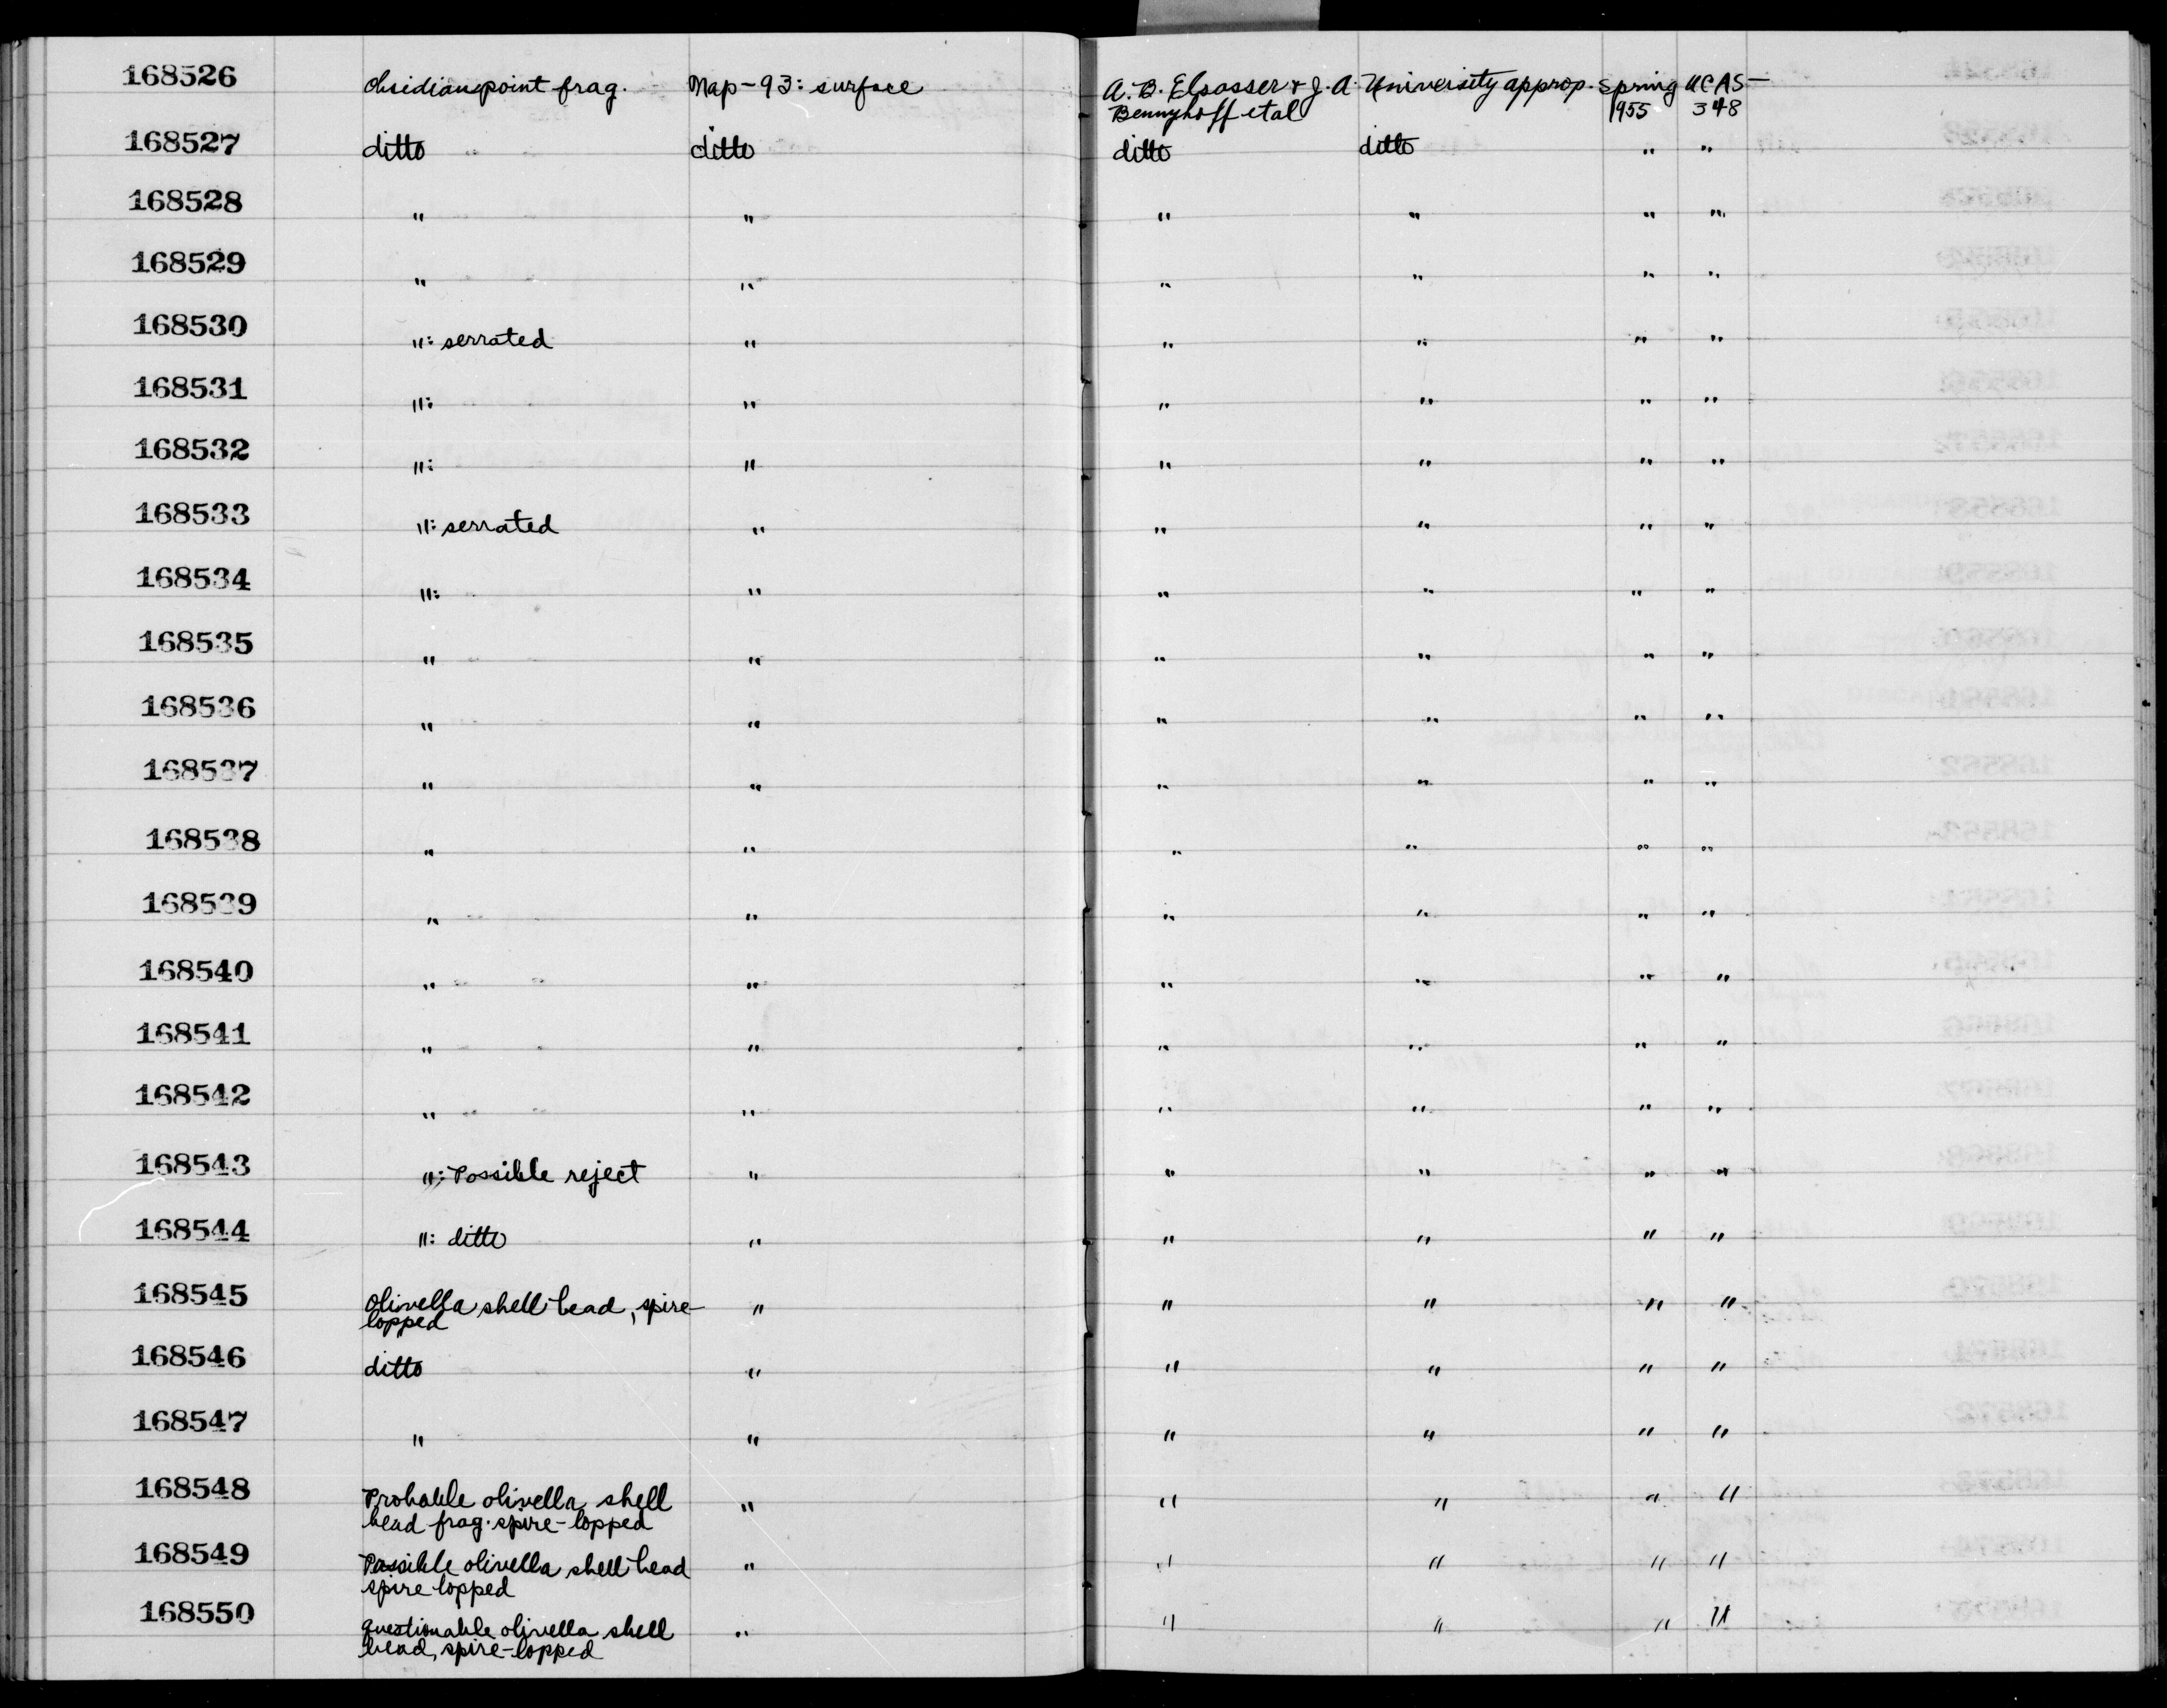 168526 Obsidian point frag. Nap-93: surface A. B. Elsasser & J. A. University approp. Spring UCAS-
Bennyhoff etal 1955 348
168527 ditto ditto ditto ditto " "
168528 " " " " " "
168529 " " " " " "
168530 ": serrated " " " " "
168531 ": " " " " "
168532 ": " " " " "
168533 ": serrated " " " " "
168534 ": " " " " "
168535 " " " " " "
168536 " " " " " "
168537 " " " " " "
168538 " " " " " "
168539 " " " " " "
168540 " " " " " "
168541 " " " " " "
168542 " " " " " "
168543 ": Possible reject " " " " "
168544 ": ditto " " " " "
168545 Olivella shell bead, spire- " " " " "
lopped
168546 ditto " " " " "
168547 " " " " " "
168548 Probable olivella shell " " " " "
bead frag. spire-lopped
168549 Possible olivella shell bead " " " " "
spire lopped
168550 Questionable olivella shell " " " " "
bead, spire-lopped